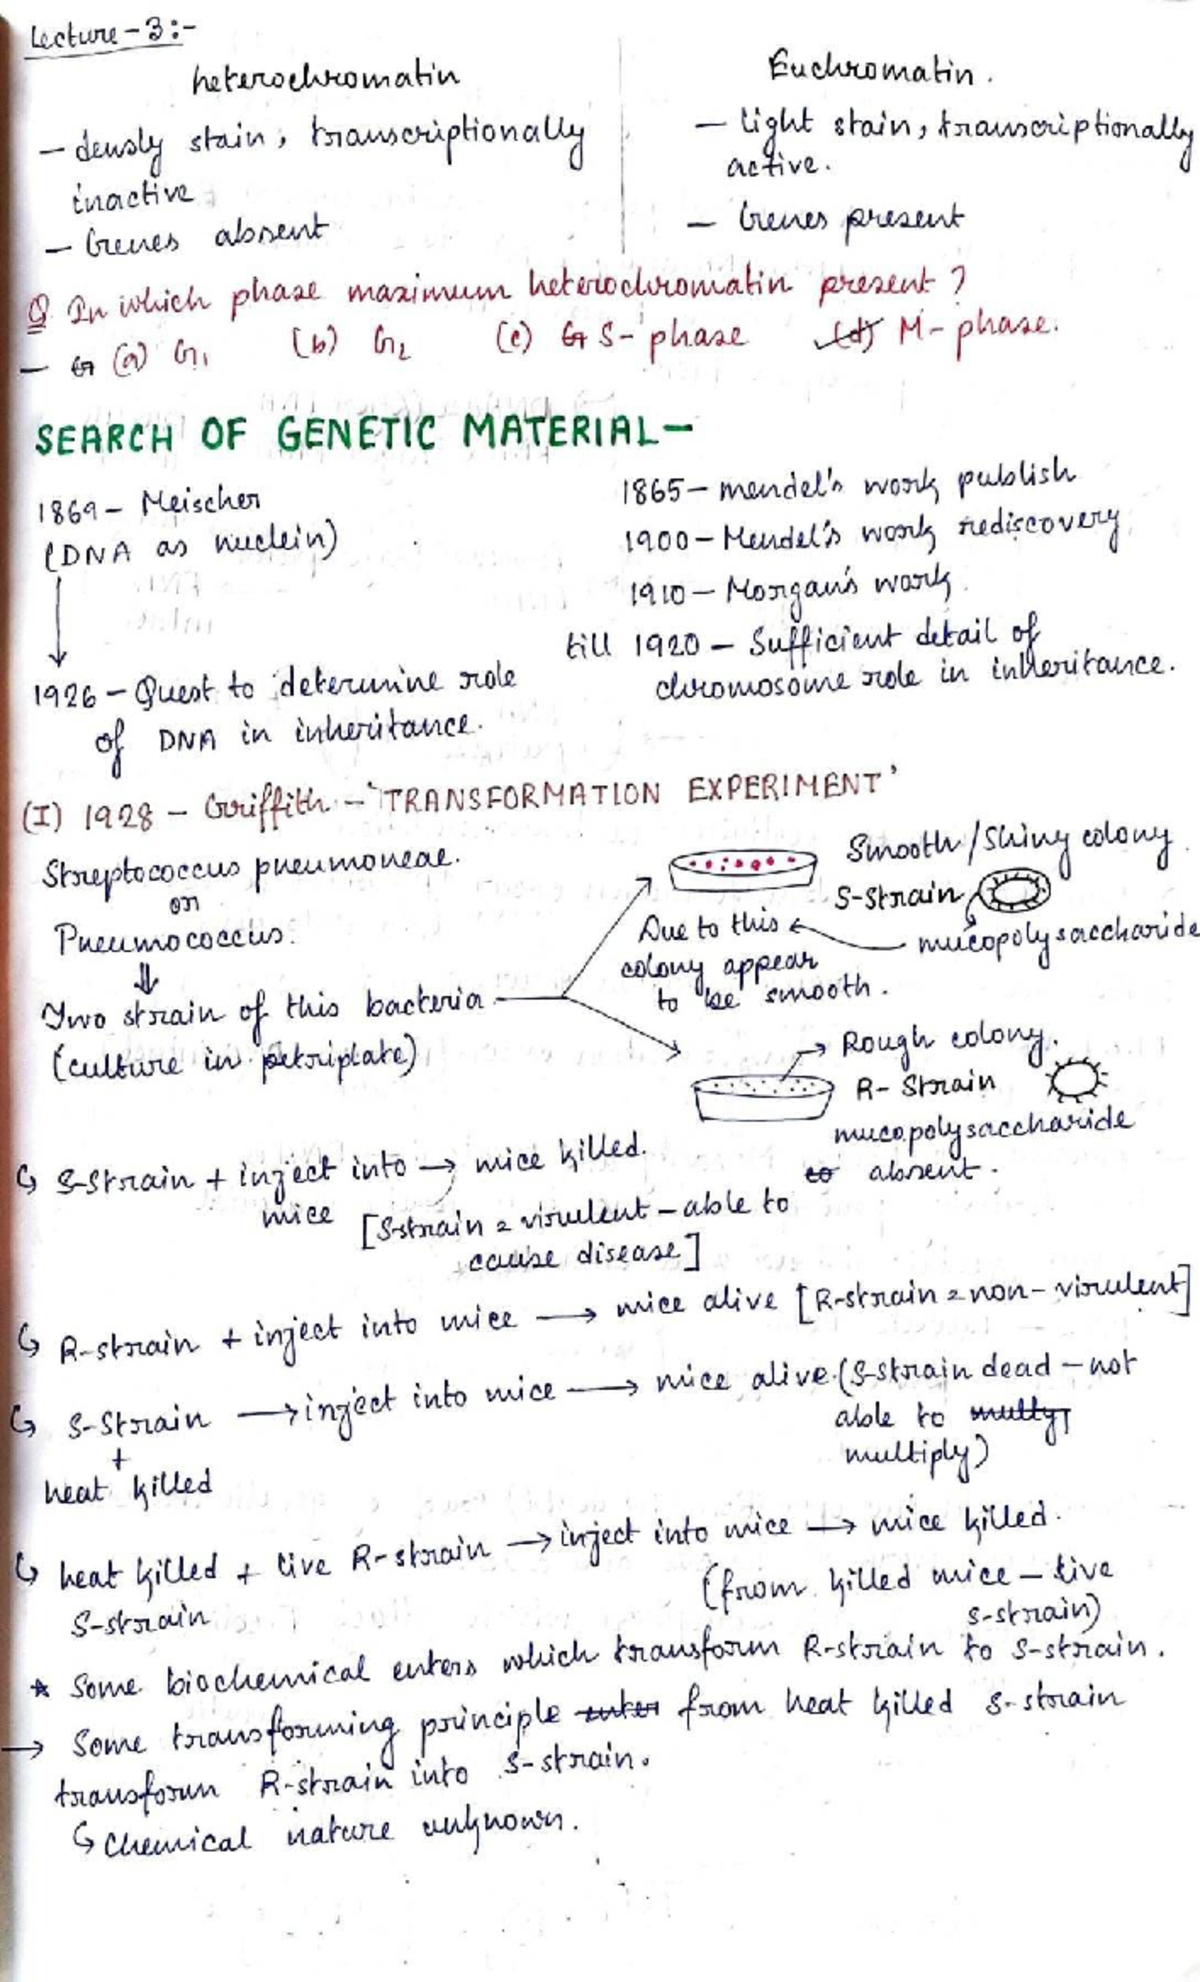 Lecture-3:-
heterochromatin
- densly stain, transcriptionally
inactive
- Genes absent
Euchromatin.
- light stain, transcriptionally
active.
- Genes present
Q In which phase maximum heterochromatin present?
- G (a) G1 (b) G2 (c) G S-phase (d) M-phase.
SEARCH OF GENETIC MATERIAL-
1869- Meischer
(DNA as nuclein)
↓
1926 - Quest to determine role
of DNA in inheritance.
1865- mendel's work publish
1900- Mendel's work rediscovery
1910- Morgan's work.
till 1920 - Sufficient detail of
chromosome role in inheritance.
(I) 1928 - Griffith - 'TRANSFORMATION EXPERIMENT'
Streptococcus pneumoneae.
or
Pneumococcus.
⇓
Two strain of this bacteria
(culture in petriplate)
Smooth/Shiny colony
S-Strain
mucopolysaccharide
Due to this ←
colony appear
to be smooth.
→ Rough colony.
R- Strain
mucopolysaccharide
to absent.
↳ S-Strain + inject into → mice killed.
mice [S-strain = virulent - able to
cause disease]
↳ R-strain + inject into mice → mice alive [R-strain = non-virulent]
↳ S-Strain → inject into mice → mice alive. (S-strain dead - not
+ able to multy
heat killed multiply)
↳ heat killed + live R-strain → inject into mice → mice killed.
S-strain (from killed mice - live
S-strain)
* Some biochemical enters which transform R-strain to S-strain.
→ Some transforming principle enter from heat killed S-strain
transform R-strain into S-strain.
↳ Chemical nature unknown.